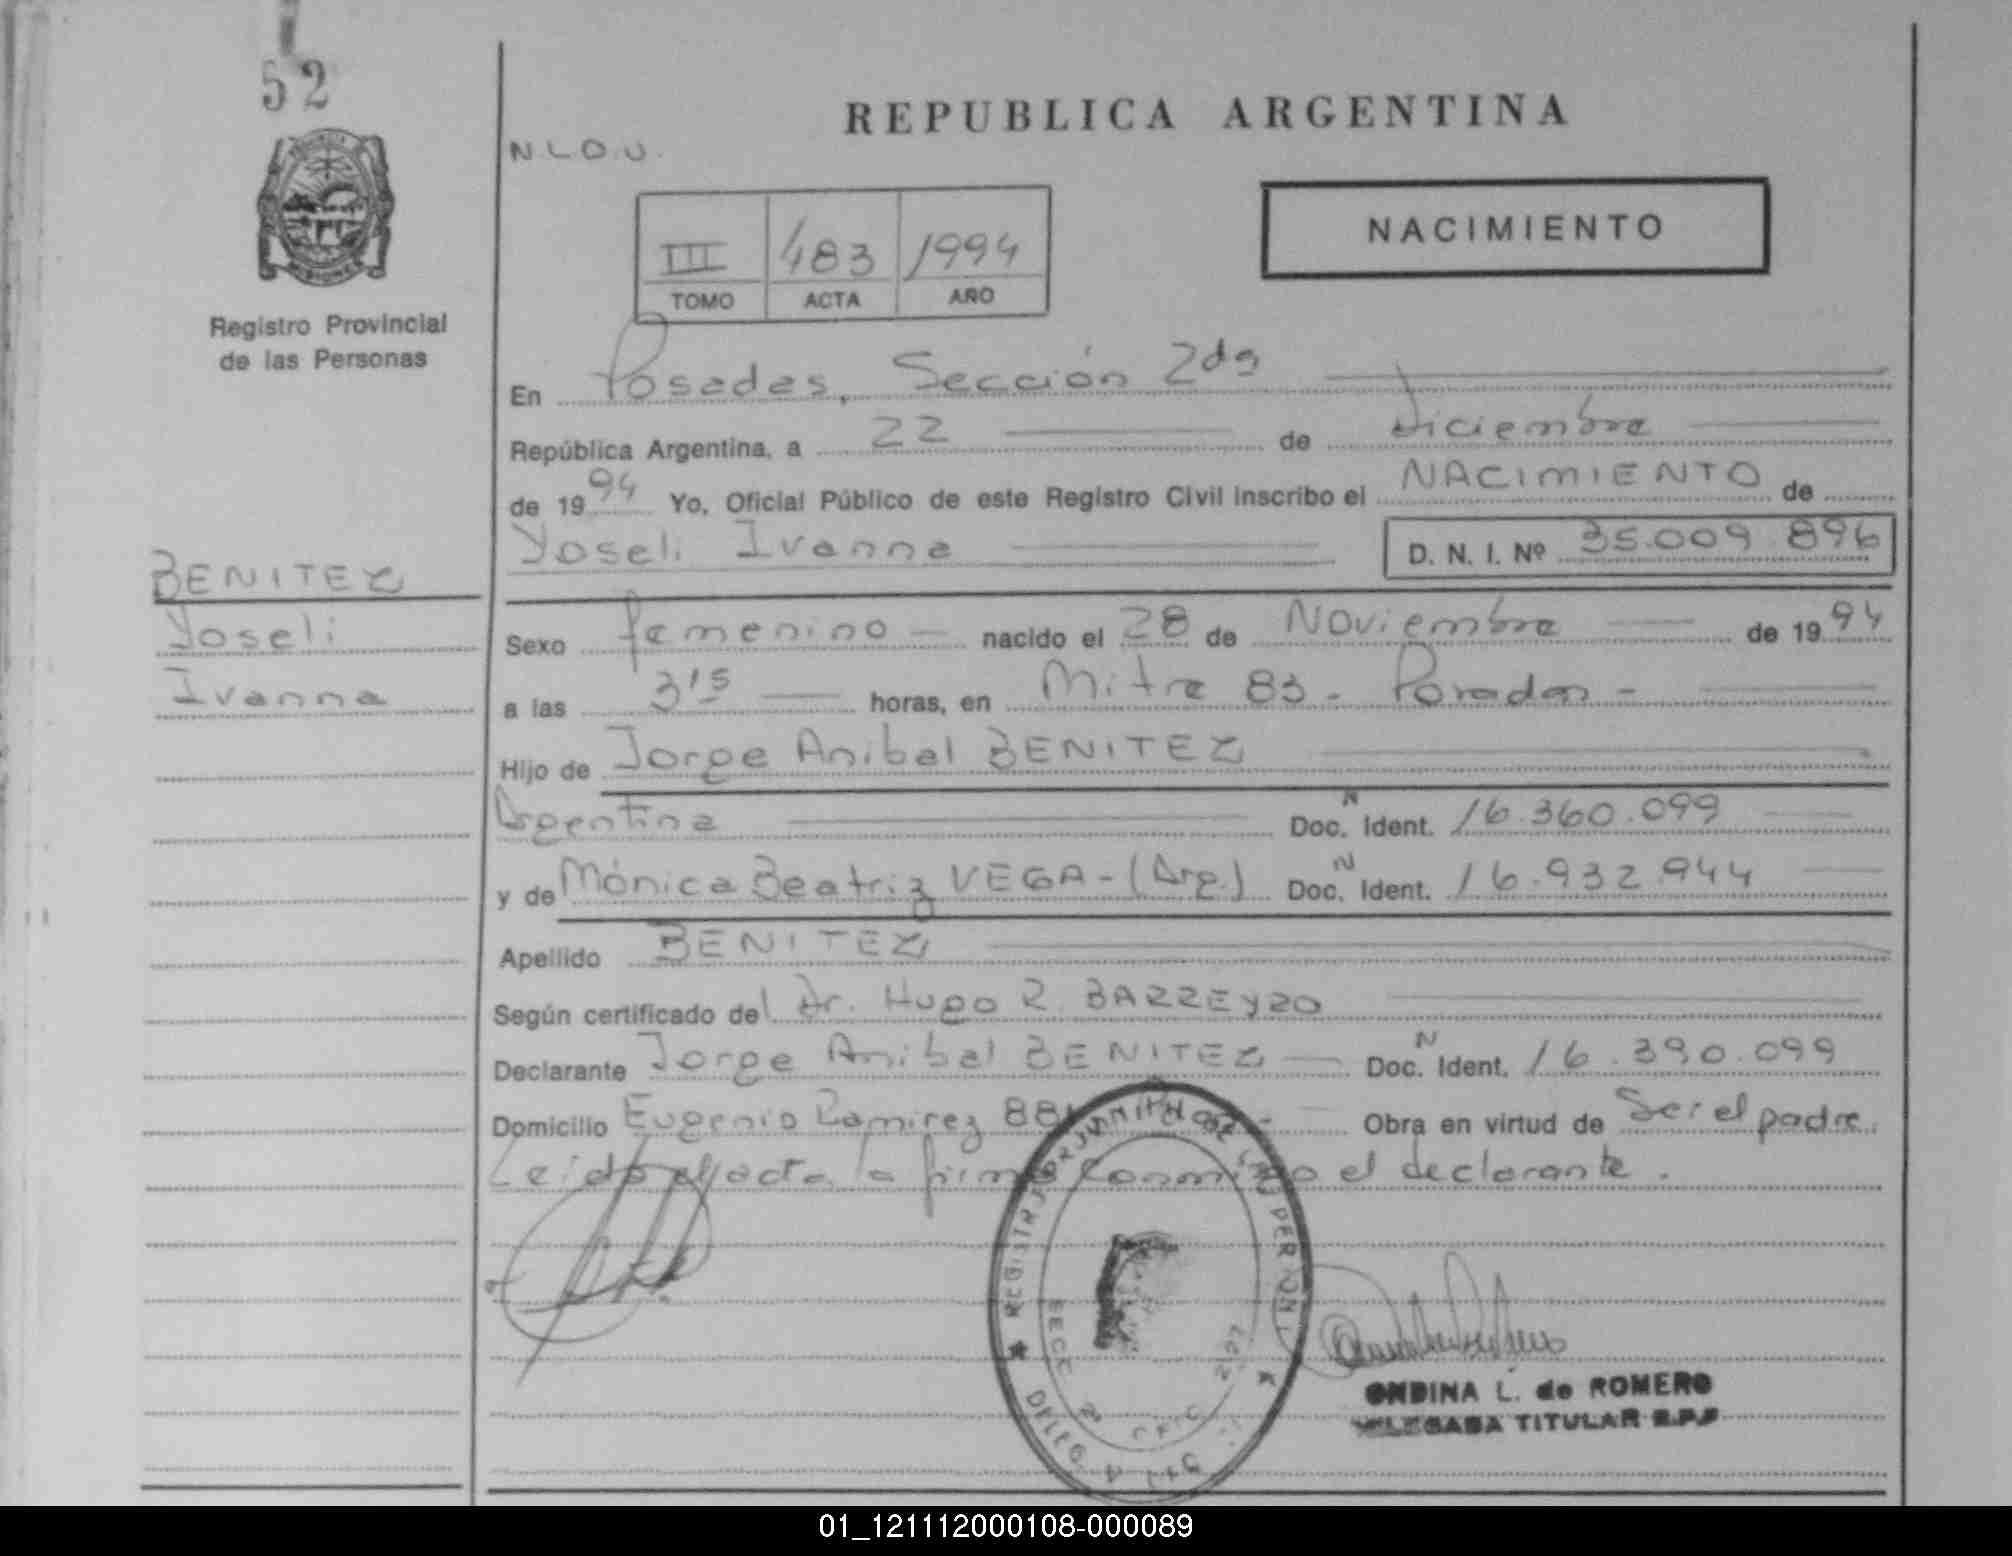 52
REPUBLICA ARGENTINA
N.L.O.U.
NACIMIENTO
III 483 1994
TOMO ACTA AÑO
Registro Provincial
de las Personas
En Posadas, Sección 2da
República Argentina, a 22 de diciembre
de 1994 Yo, Oficial Público de este Registro Civil inscribo el NACIMIENTO de
Yoseli Ivanna D. N. I. Nº 35.009.896
BENITEZ
Yoseli
Ivanna
Sexo femenino nacido el 28 de Noviembre de 1994
a las 3'15 horas, en Mitre 83 - Posadas -
Hijo de Jorge Anibal BENITEZ
Argentina Doc. N Ident. 16.360.099
y de Mónica Beatriz VEGA - (Arg.) Doc. N Ident. 16.932.944
Apellido BENITEZ
Según certificado del Dr. Hugo R. BARREYRO
Declarante Jorge Anibal BENITEZ Doc. N Ident. 16.390.099
Domicilio Eugenio Ramirez Obra en virtud de Ser el padre.
Leído el acta la firma conmigo el declarante.
REGISTRO DE LAS PERSONAS
ONDINA L. de ROMERO
DELEGADA TITULAR R.P.P.
01_121112000108-000089